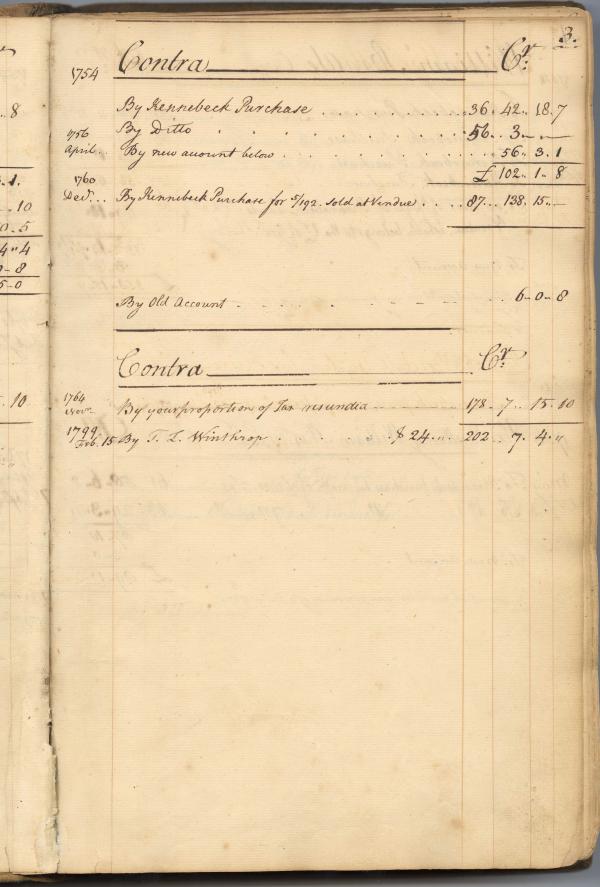 3.
1754 Contra Cr.
By Kennebeck Purchase 36 . 42 .. 18. 7
1756 By Ditto 56 .. 3 .. — .. —
April .. By new account below 56 .. 3. 1
£ 102 .. 1 .. 8
1760
Decr. .. By Kennebeck Purchase for 3/192. Sold at Vendue 87 .. 138. 15 .. —
By Old Account 6 .. 0 .. 8
Contra Cr.
1764
Novr. By your proportion of Tax 178 .. 7 .. 15. 10
1799
Feb. 15 By T. L. Winthrop $ 24 .. „ 202 .. 7. 4. „
.. 8
3. 1.
.. 10
0 .. 5
4 .. 4
0 .. 8
5 .. 0
.. 10